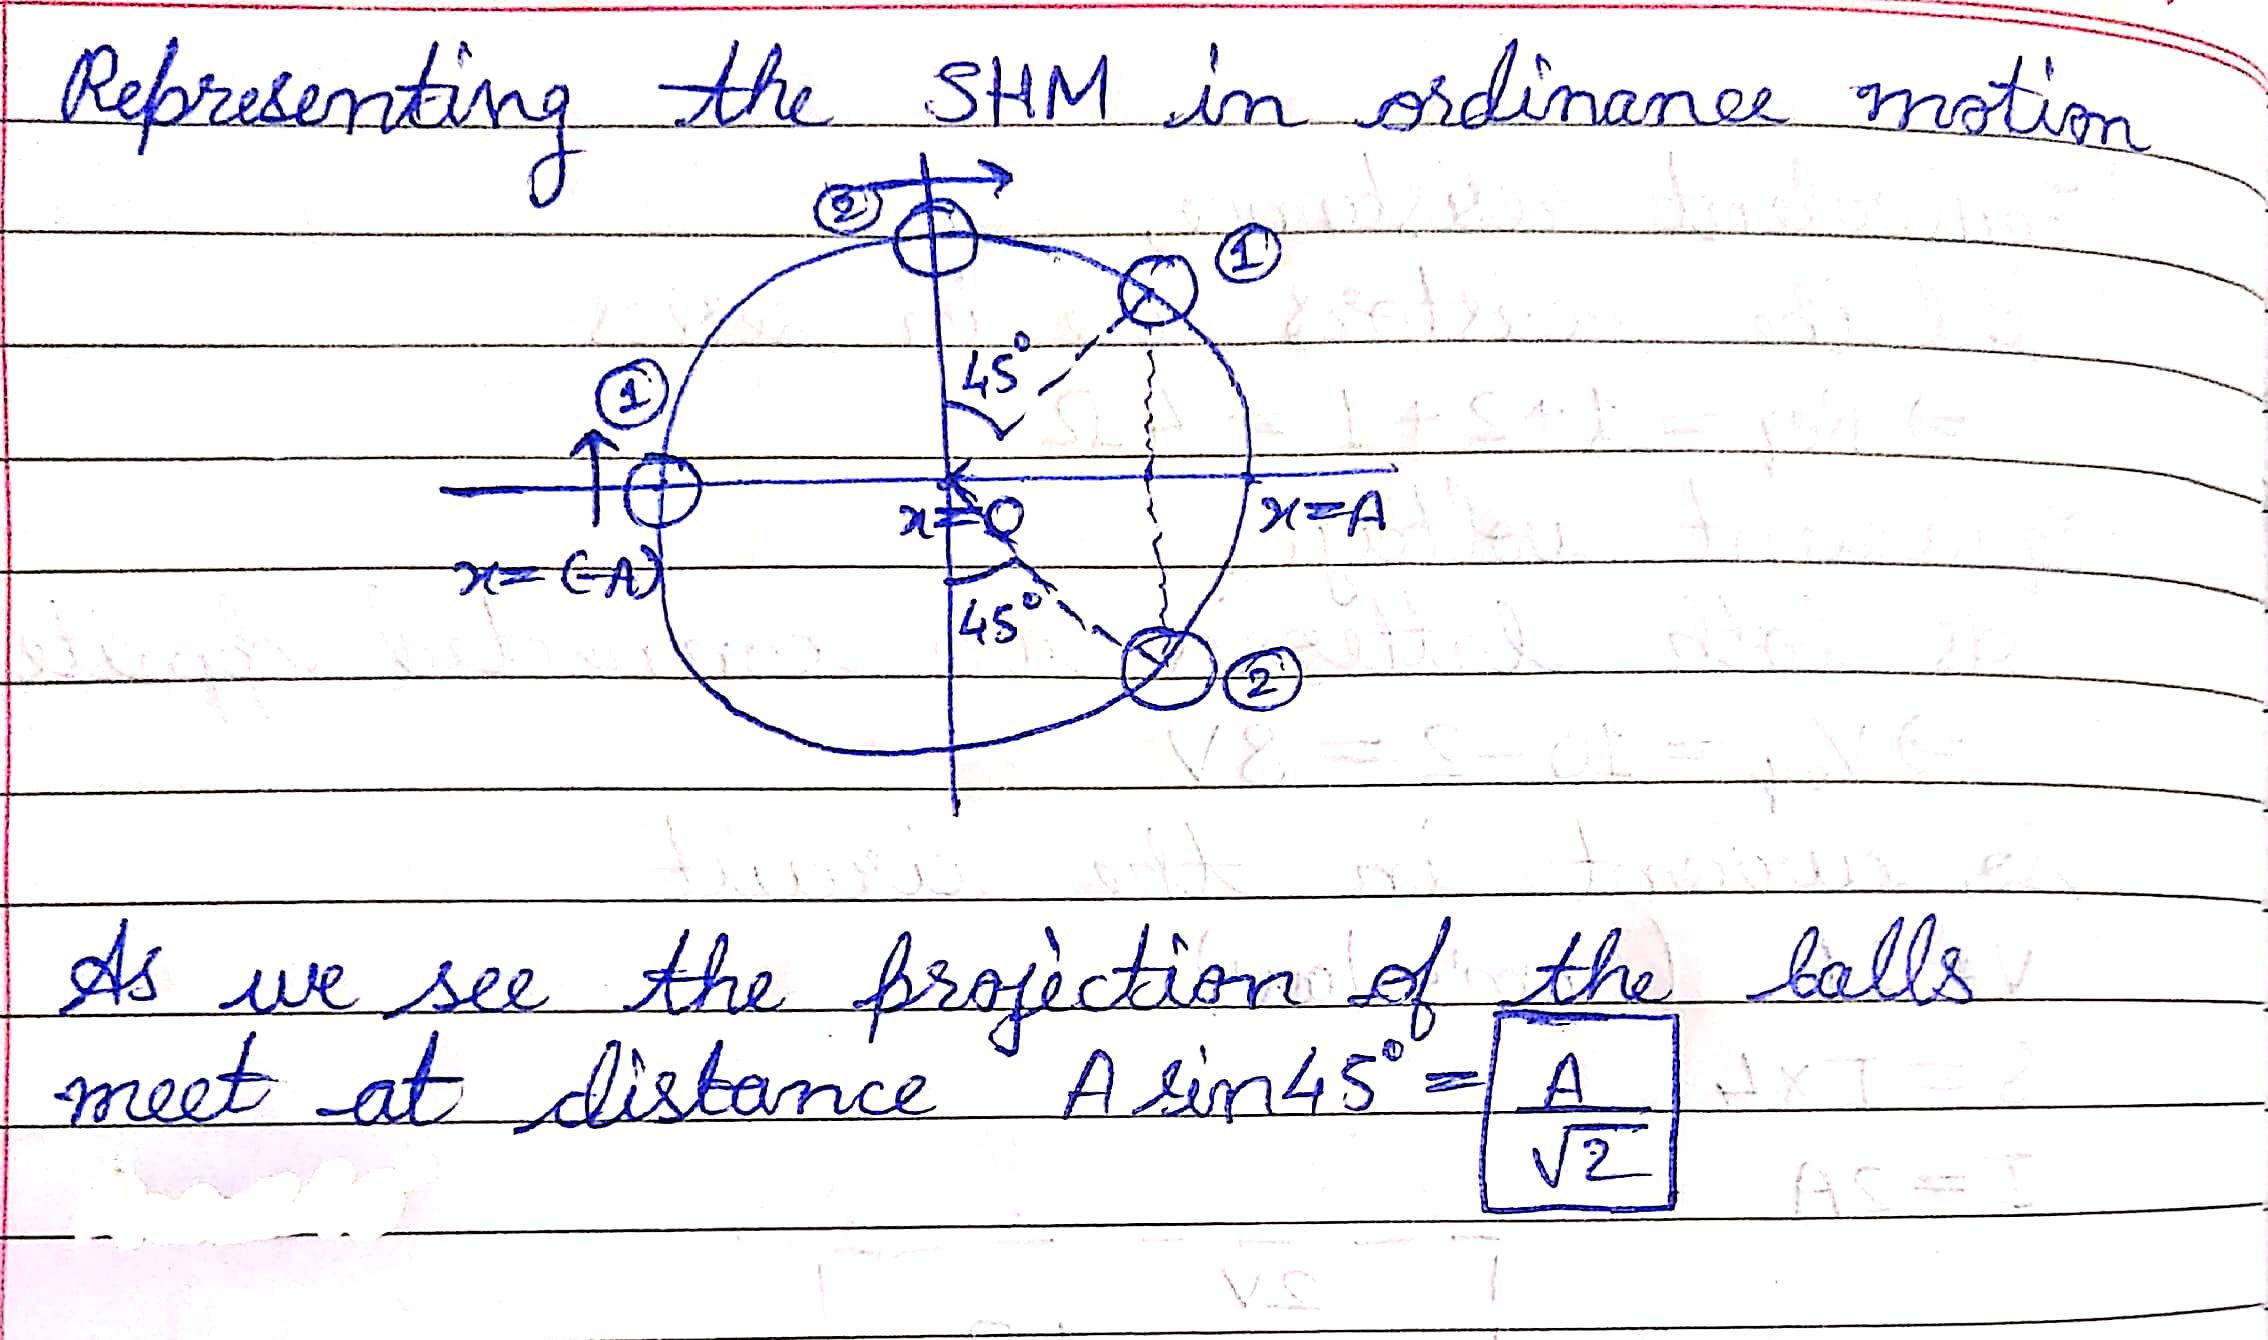 Representing the SHM in ordinance motion
② ①
45°
①
x=0 x=A
x= (-A)
45°
②
As we see the projection of the balls
meet at distance A sin45° = A/√2